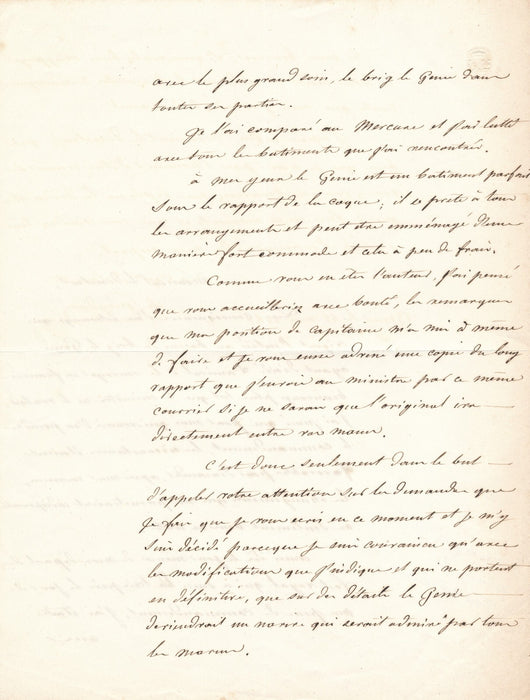 avec le plus grand soin, le brig le Génie dans
toutes ses parties.
Je l'ai comparé au Mercure et j'ai lutté
avec tous les batiments que j'ai rencontrés.
à mes yeux le Génie est un batiment parfait
sous le rapport de la coque; il se prete à tous
les arrangements et peut être emménagé d'une
manière fort commode et cela à peu de frais.
Comme vous en êtes l'auteur, j'ai pensé
que vous accueilleriez avec bonté, les remarques
que ma position de capitaine m'a mis à même
de faire et je vous eusse adressé une copie du long
rapport que j'envoie au ministre par ce même
courrier si je ne savais que l'original ira
directement entre vos mains.
C'est donc seulement dans le but
d'appeler votre attention sur les demandes que
je fais que je vous écris en ce moment et je m'y
suis décidé parceque je suis convaincu qu'avec
les modifications que j'indique et qui ne portent
en définitive, que sur des détails le Génie
deviendrait un navire qui serait admiré par tous
les marins.